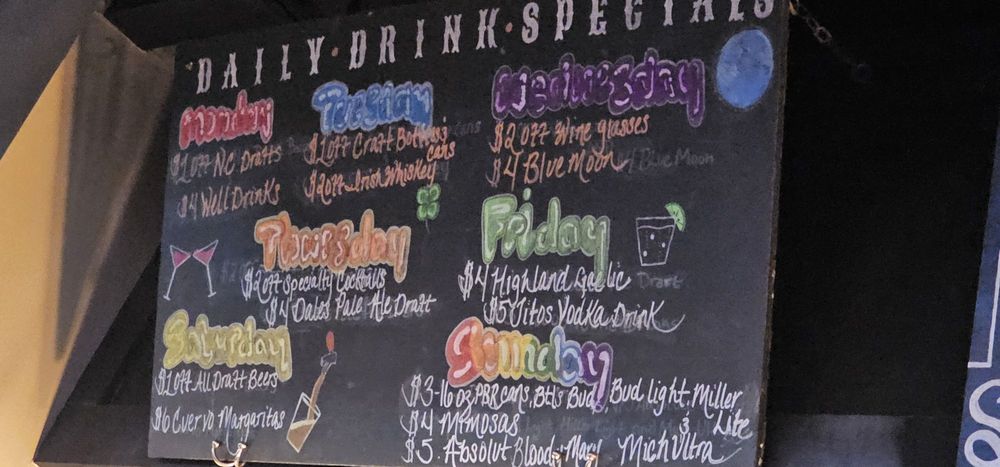 DAILY · DRINK · SPECIALS
Monday
$1 off NC Drafts
$4 Well Drinks
Tuesday
$1 off Craft Bottles;
cans
$2 off Irish Whiskey
Wednesday
$2 off Wine glasses
$4 Blue Moon
Blue Moon
Thursday
$2 off Specialty Cocktails
$4 Dales Pale Ale Draft
Friday
$4 Highland Gaelic
Draft
$5 Titos Vodka Drink
Saturday
$1 off All Draft Beers
$6 Cuervo Margaritas
Sunday
$3-16 oz PBR cans, Btls Bud, Bud light, Miller
Lite
$4 Mimosas
& Mich Ultra
$5. Absolut Bloody Mary